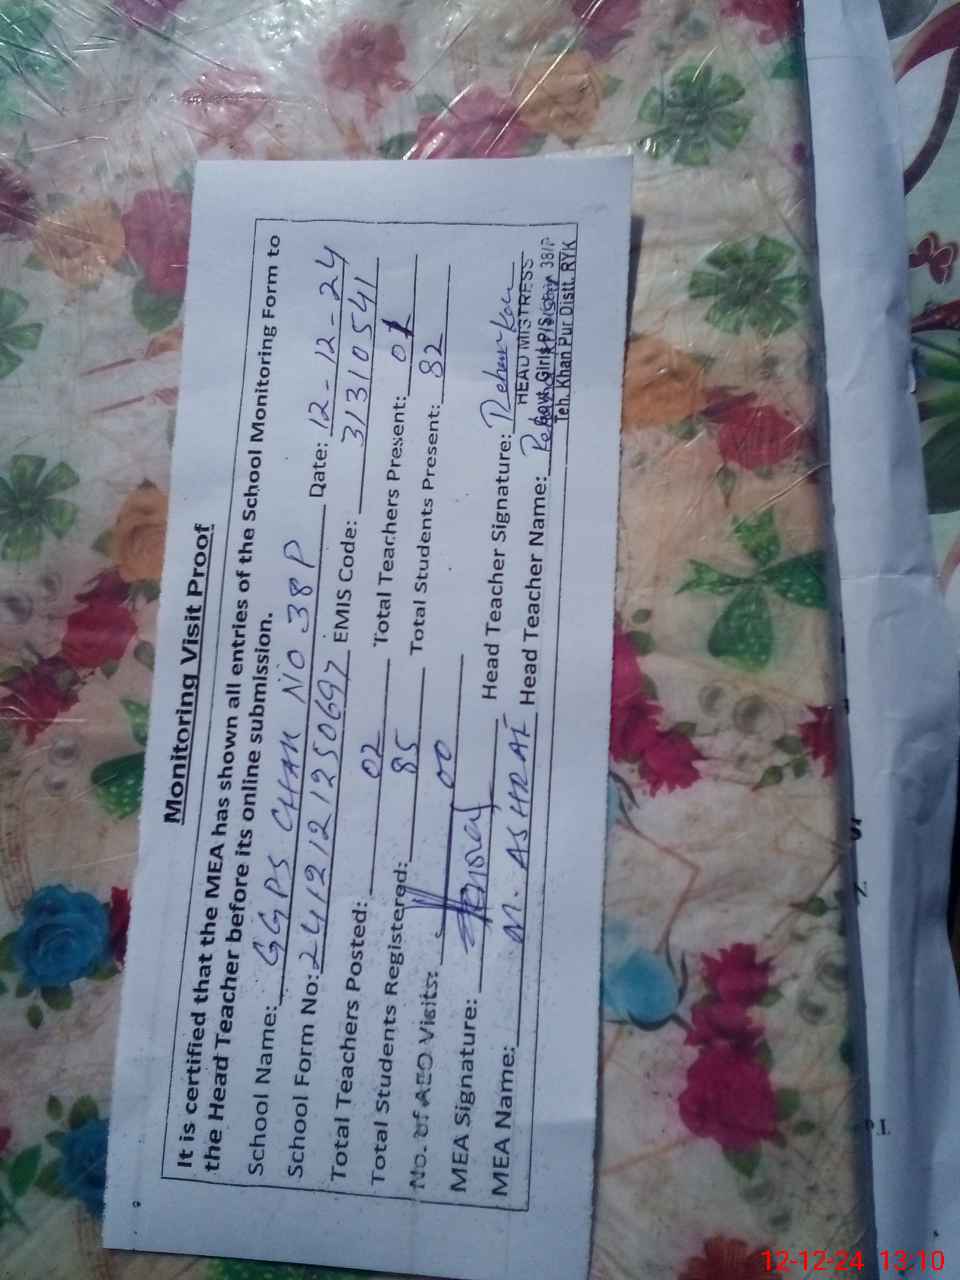 Monitoring Visit Proof
It is certified that the MEA has shown all entries of the School Monitoring Form to
the Head Teacher before its online submission.
School Name: GGPS CHAK NO 38P Date: 12-12-24
School Form No: 2412121250697 EMIS Code: 31310541
Total Teachers Posted: 02 Total Teachers Present: 01
Total Students Registered: 85 Total Students Present: 82
No. of AEO Visits: 00
MEA Signature: Head Teacher Signature:
MEA Name: M. ASHRAF Head Teacher Name:
HEAD MISTRESS
Govt. Girls P/S 38/P
Teh. Khan Pur Distt. RYK
12-12-24 13:10